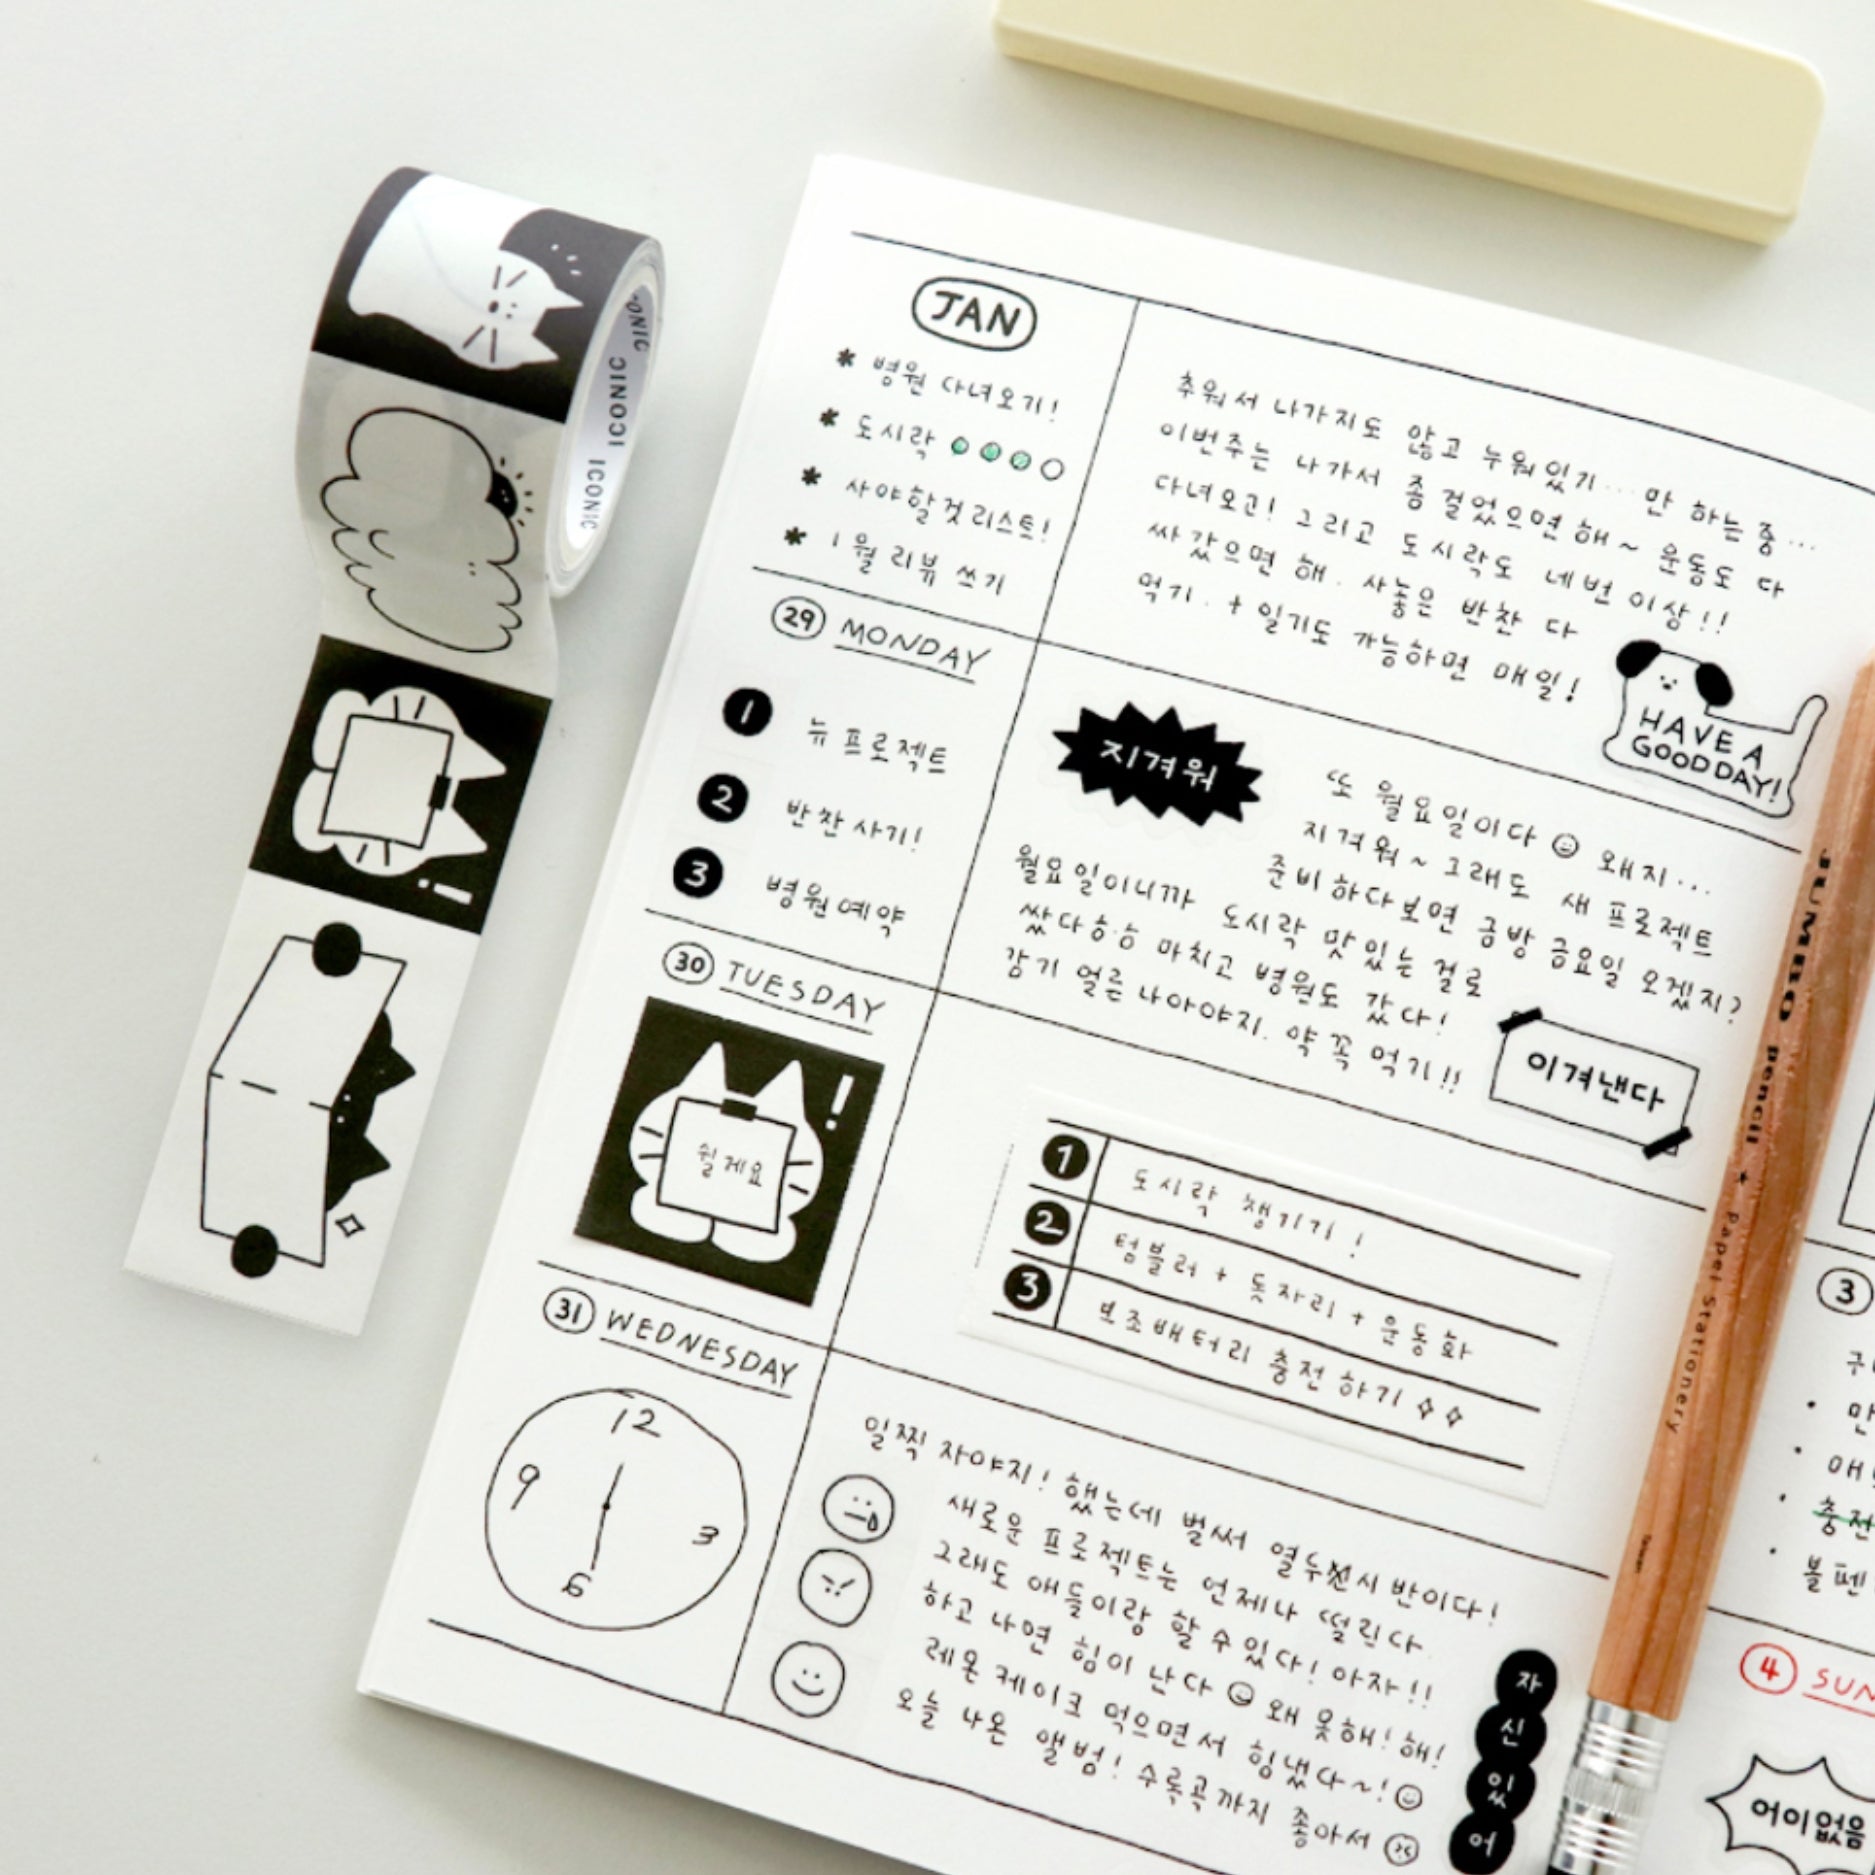 ICONIC
ICONIC
JAN
* 병원 다녀오기!
* 도시락
* 사야할것리스트!
* 1월 리뷰 쓰기
추워서 나가지도 않고 누워있기... 만 하는 중...
이번주는 나가서 좀 걸었으면 해~ 운동도 다
다녀오고! 그리고 도시락도 네번 이상!!
싸갔으면 해. 사놓은 반찬 다
먹기. + 일기도 가능하면 매일!
HAVE A
GOOD DAY!
29 MONDAY
1 뉴 프로젝트
2 반찬 사기!
3 병원예약
지겨워
또 월요일이다 왜지...
지겨워~ 그래도 새 프로젝트
준비하다보면 금방 금요일 오겠지?
월요일이니까 도시락 맛있는 걸로
쌌다승승 마치고 병원도 갔다!
감기 얼른 나아야지. 약 꼭 먹기!!
이겨낸다
30 TUESDAY
!
쉴게요
1 도시락 챙기기!
2 텀블러 + 돗자리 + 운동화
3 보조배터리 충전하기
31 WEDNESDAY
12
9
3
6
일찍 자야지! 했는데 벌써 열두시 반이다!
새로운 프로젝트는 언제나 떨린다
그래도 애들이랑 할 수 있다! 아자!!
하고 나면 힘이 난다 왜 못해! 해!
레몬 케이크 먹으면서 힘냈다~!
오늘 나온 앨범! 수록곡까지 좋아서
자
신
있
어
JUMBO pencil ★ Papei Stationery
3
만
매
충전
볼펜
4 SUN
어이없음